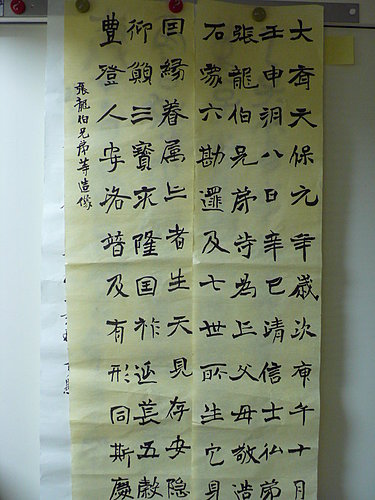 大齊天保元年歲次庚午十月
壬申朔八日辛巳清信士仏弟
張龍伯兄弟等為亡父母敬造
石像六勘 及七世所生它身
因緣眷属亡者生天見存安隱
仰願三寶永隆国祚延萇五穀
豊登人安洛普及有形同斯慶
張龍伯兄弟等造像